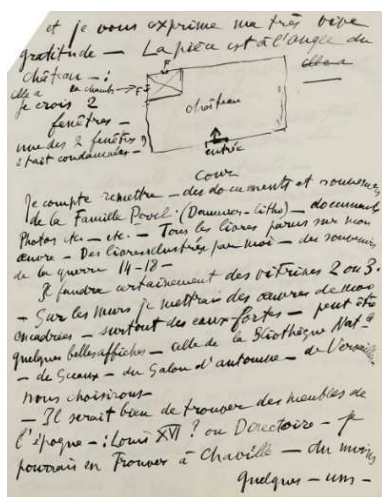 et je vous exprime ma très vive
gratitude — La pièce est à l'angle du
château — :
elle a
je crois 2
fenêtres —
une des 2 fenêtres
était condamnée —
F
F
château
entrée
cour
Je compte remettre — des documents et souvenirs
de la Famille (Daumier - litho) — documents
Photos etc — etc — Tous les livres parus sur mon
œuvre — Des livres illustrés par moi — des souvenirs
de la guerre 14-18 —
Il faudra certainement des vitrines 2 ou 3.
— Sur les murs je mettrais des œuvres de moi
encadrées — surtout des eaux fortes — peut être
quelques belles affiches — celle de la Bibliothèque Nat
— de Sceaux — du Salon d'automne — de Versailles
nous choisirons —
— Il serait bien de trouver des meubles de
l'époque — : Louis XVI ? ou Directoire — je
pourrais en Trouver à Chaville — du moins
quelques - uns —